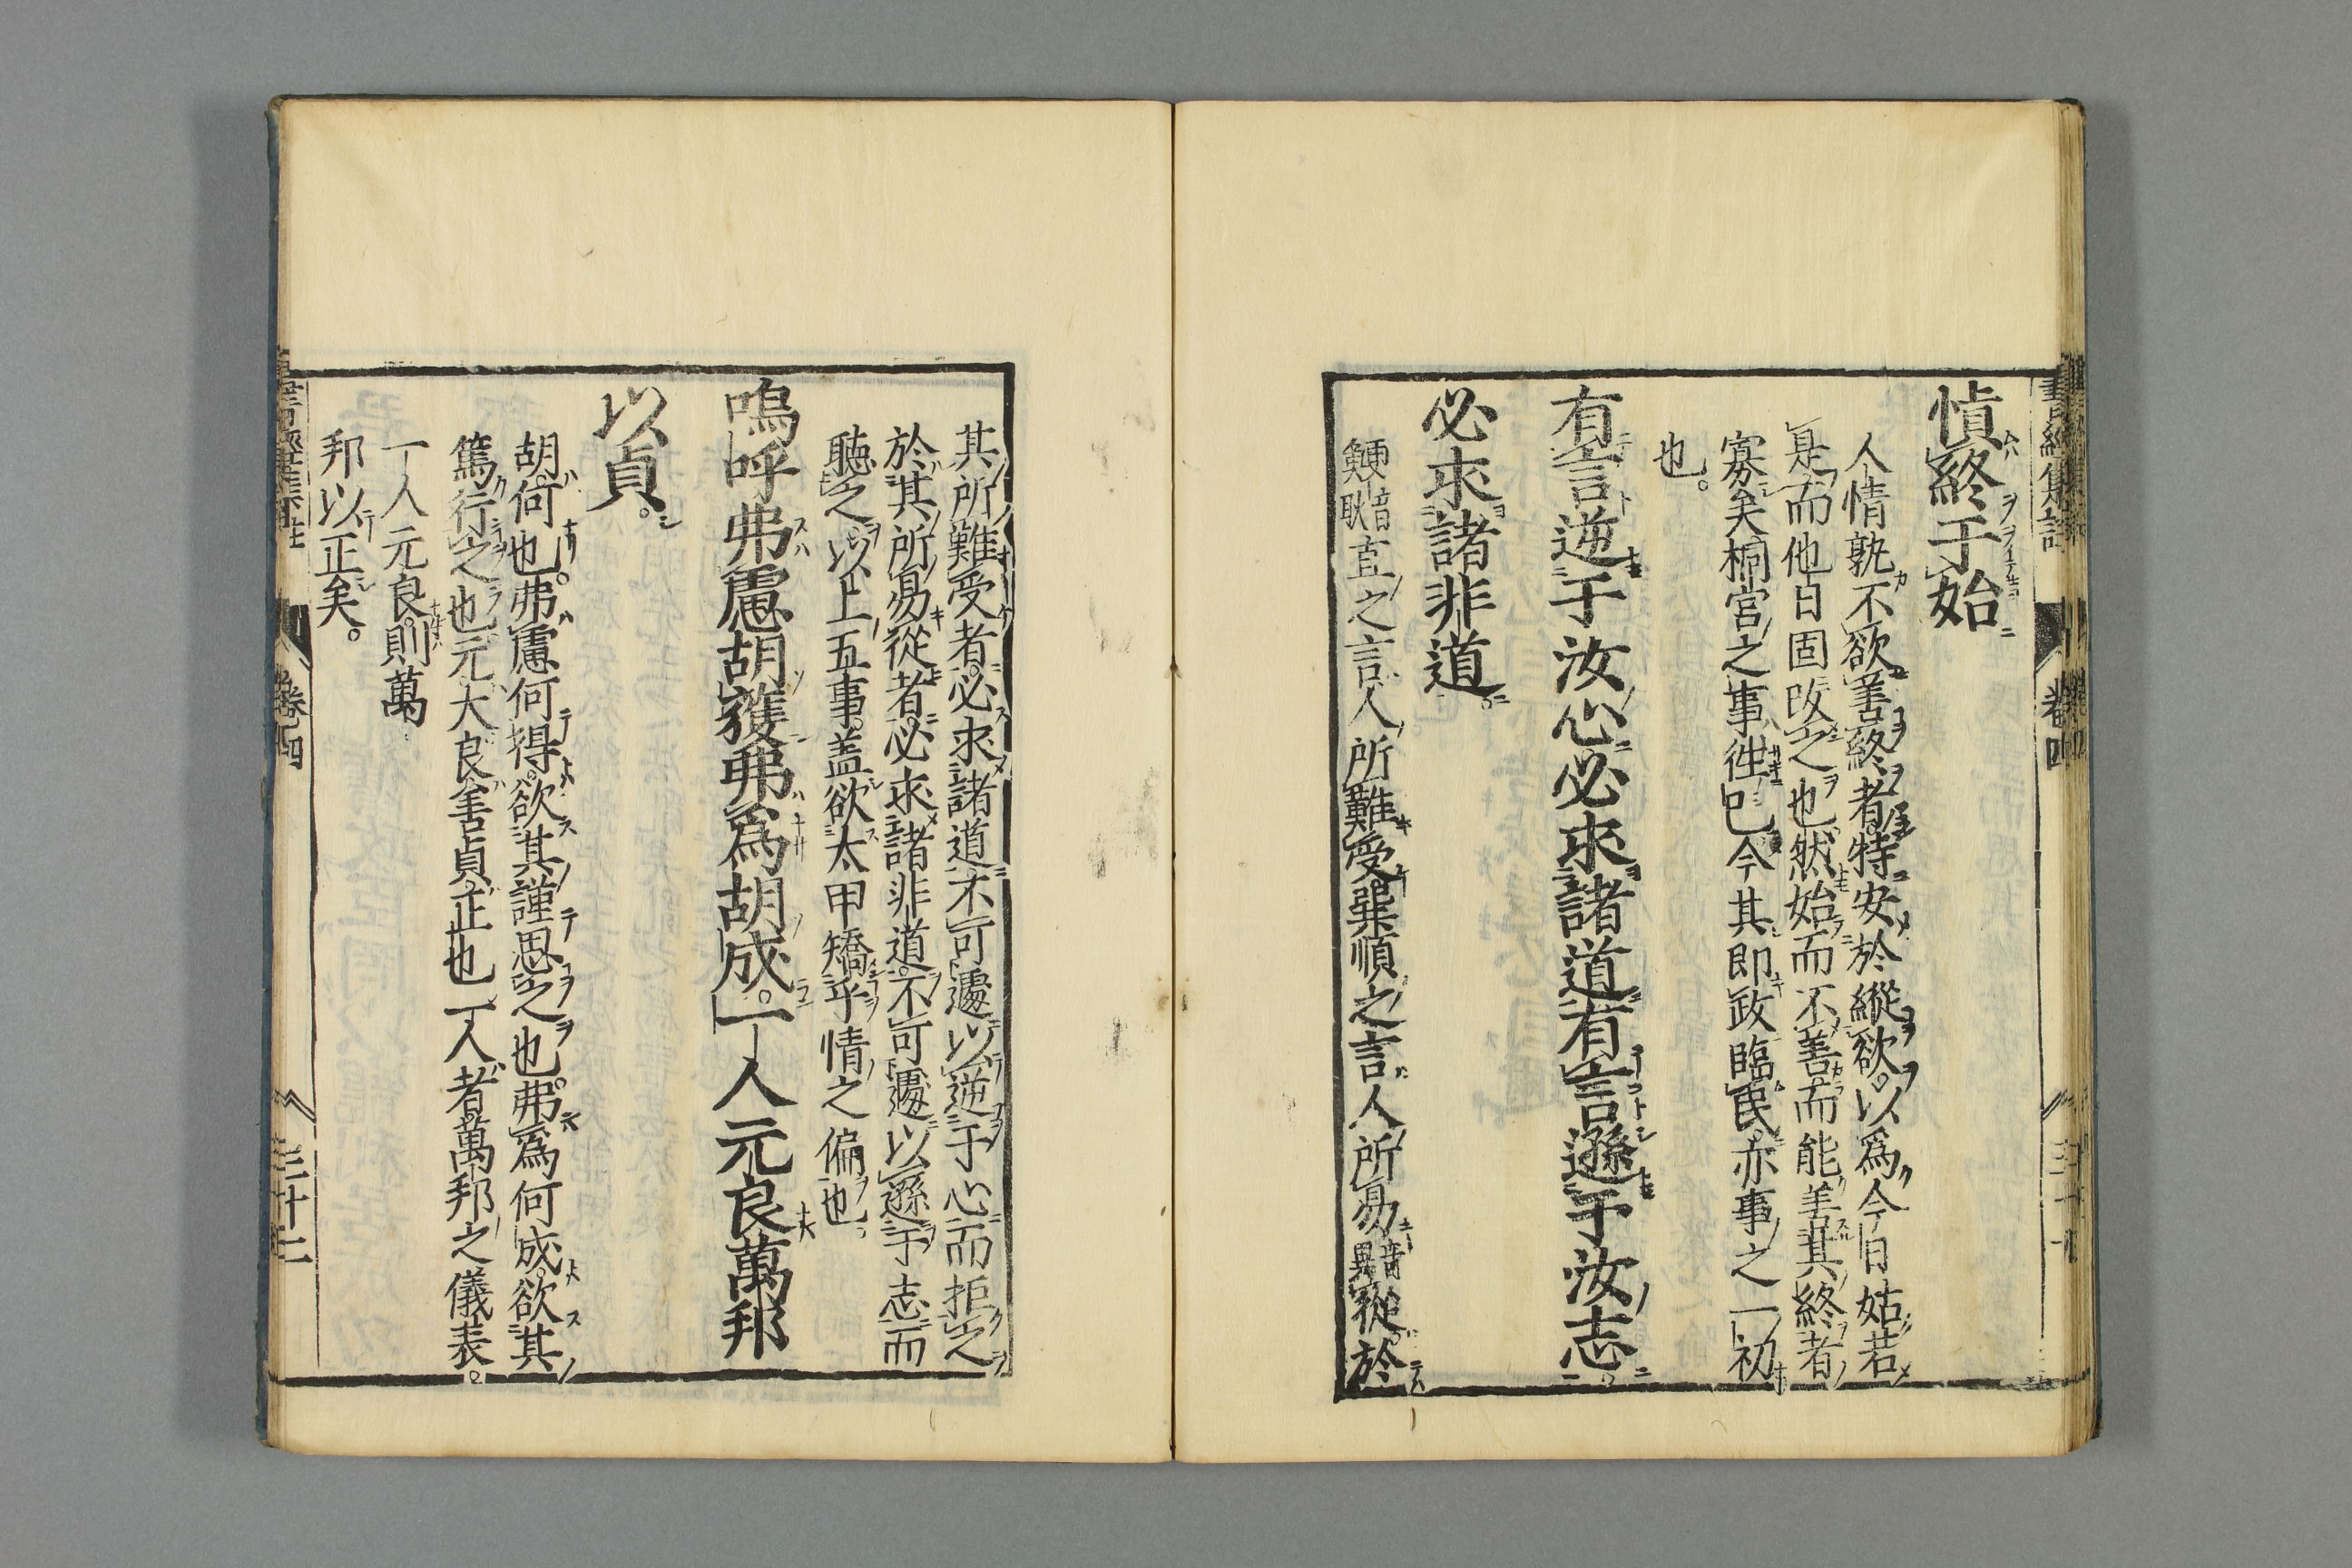 書經集註 卷四
愼終于始
人情孰不欲善終者特安於縱欲以爲今日姑若
是而他日固改之也然始而不善而能善其終者
寡矣桐宮之事徃已今其卽政臨民亦事之一初
也
有言逆于汝心必求諸道有言遜于汝志
必求諸非道
鯁音耿直之言人所難受巽順之言人所易音異從於
其所難受者必求諸道不可遽以逆于心而拒之
於其所易從者必求諸非道不可遽以遜于志而
聽之以上五事蓋欲太甲矯乎情之偏也
嗚呼弗慮胡獲弗爲胡成一人元良萬邦
以貞
胡何也弗慮何得欲其謹思之也弗爲何成欲其
篤行之也元大良善貞正也一人者萬邦之儀表
一人元良則萬
邦以正矣
書經集註 卷四 三十二